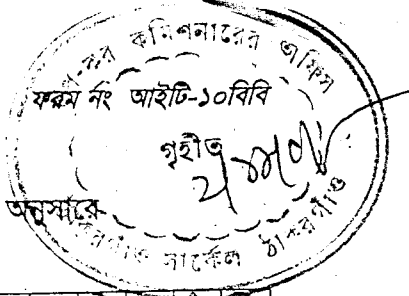 কর কমিশনারের অফিস
ফরম নং আইটি-১০বিবি
গৃহীত
অনুসারে
সার্কেল ঠাকুরগাঁও